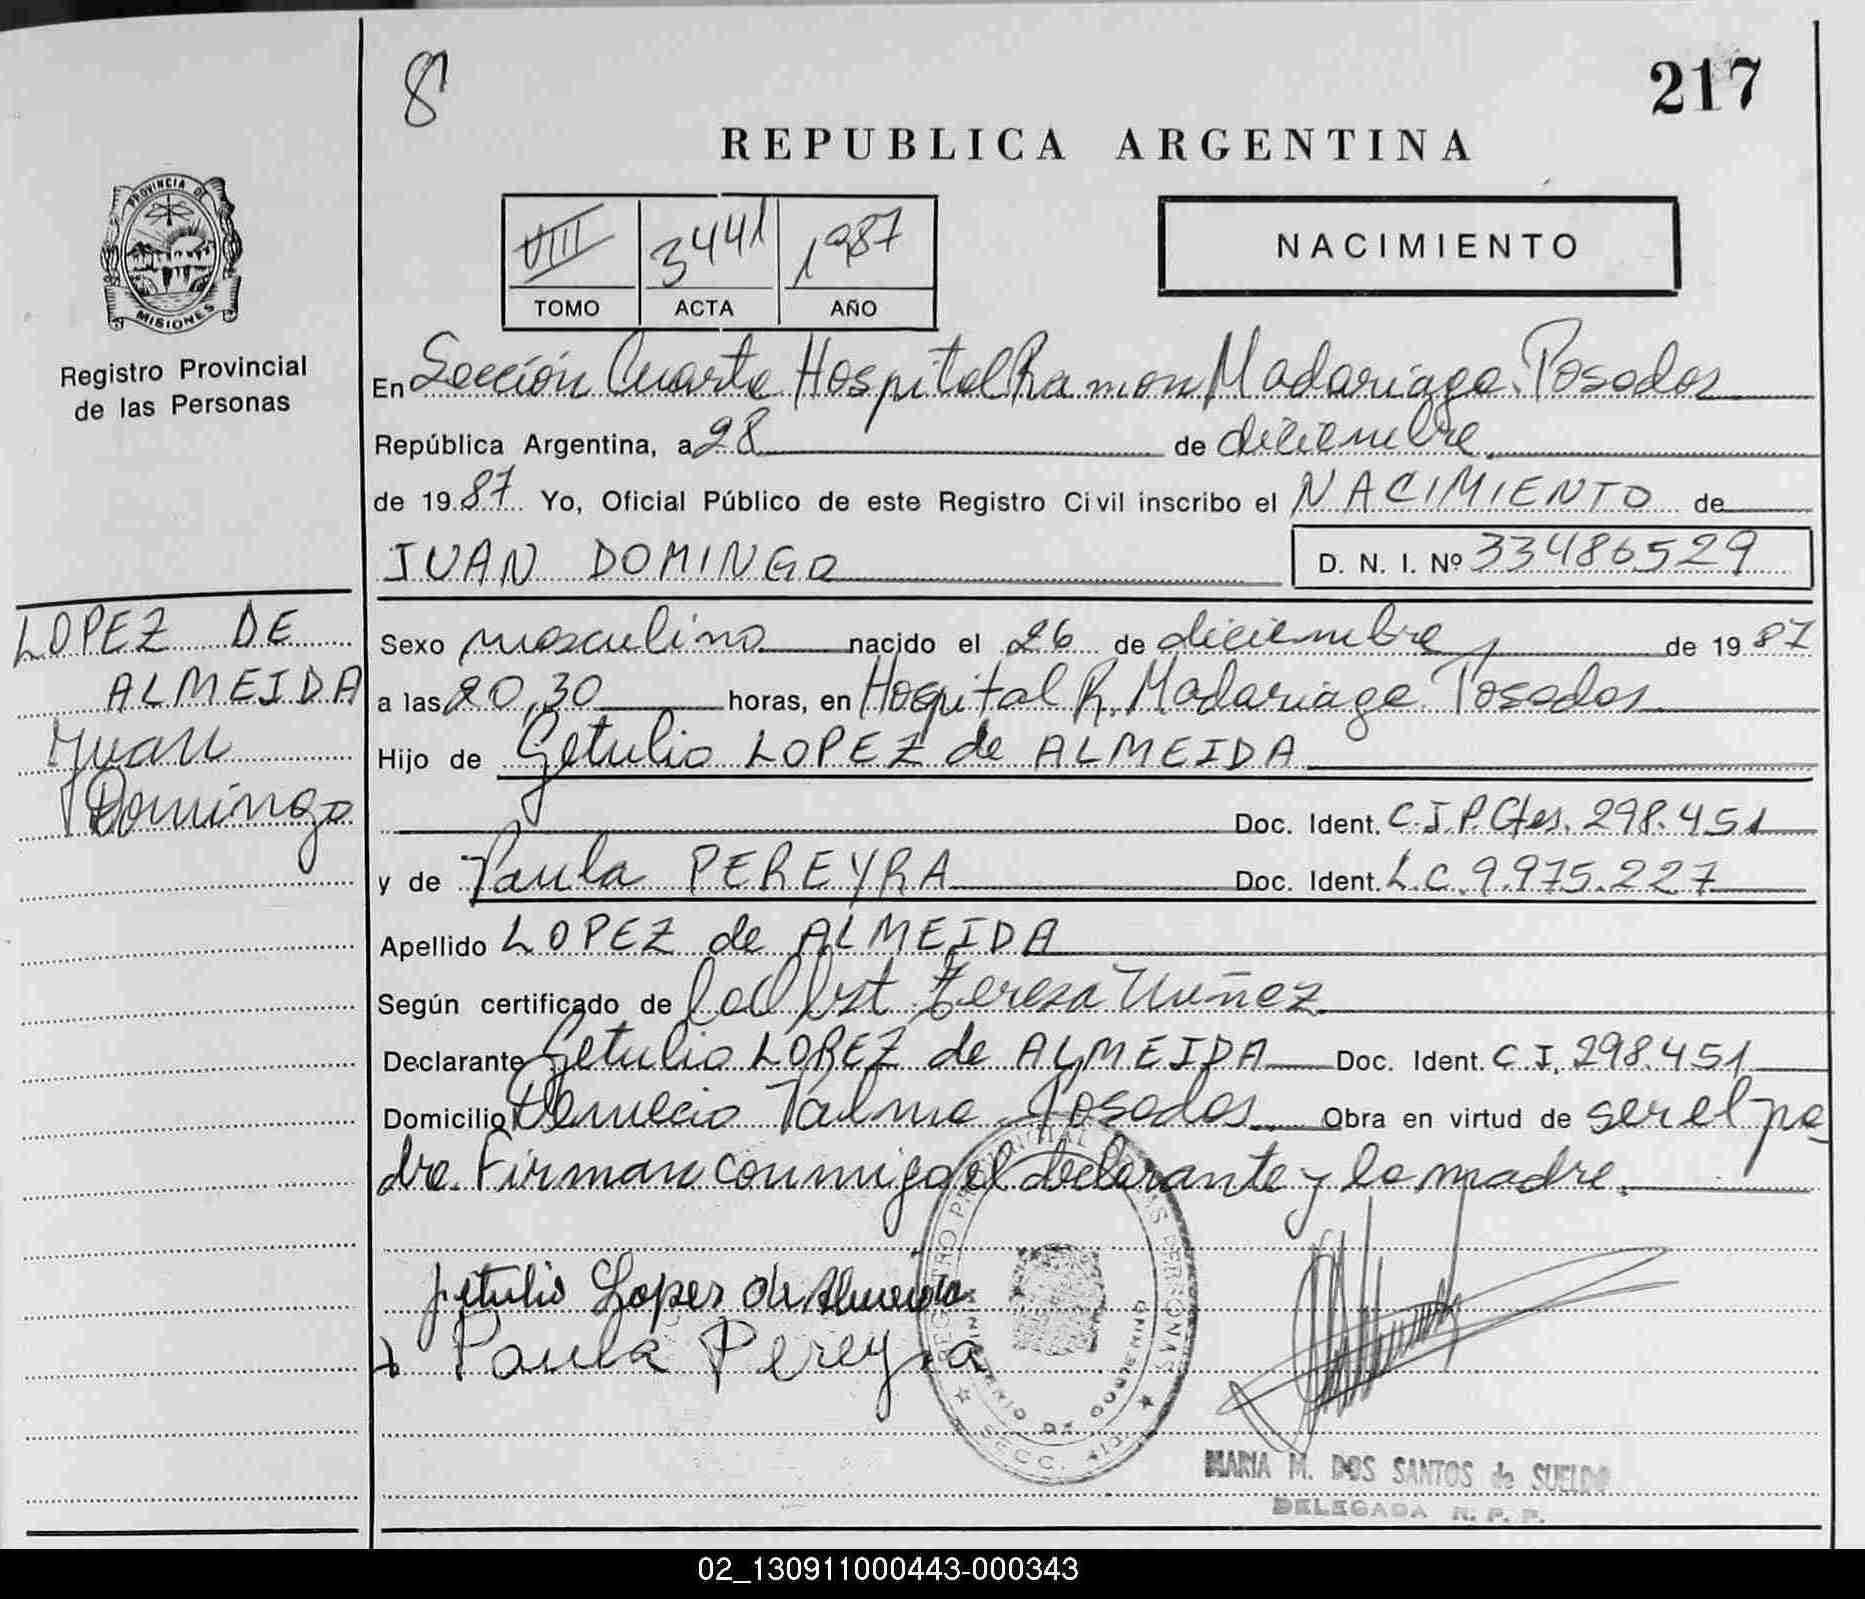 8
217
REPUBLICA ARGENTINA
PROVINCIA DE
MISIONES
Registro Provincial
de las Personas
VIII 3441 1987
TOMO ACTA AÑO
NACIMIENTO
En Sección Cuarta Hospital Ramon Madariaga. Posadas
República Argentina, a 28 de diciembre
de 1987 Yo, Oficial Público de este Registro Civil inscribo el NACIMIENTO de
JUAN DOMINGO D. N. I. Nº 33486529
LOPEZ DE
ALMEIDA
Juan
Domingo
Sexo masculino nacido el 26 de diciembre de 1987
a las 20,30 horas, en Hospital R. Madariaga. Posadas
Hijo de Getulio LOPEZ de ALMEIDA
Doc. Ident. C.I.P.Ctes. 298.451
y de Paula PEREYRA Doc. Ident. L.C. 9.975.227
Apellido LOPEZ de ALMEIDA
Según certificado de Obst Teresa Nuñez
Declarante Getulio LOPEZ de ALMEIDA Doc. Ident. C.I. 298.451
Domicilio Posadas Obra en virtud de ser el pa
dre. Firman conmigo el declarante y la madre.
Getulio Lopes de Almeida
Paula Pereyra
REGISTRO PROVINCIAL DE LAS PERSONAS
MINISTERIO DE GOBIERNO
SECC. 4ta.
MARIA M. DOS SANTOS de SUELDO
DELEGADA R. P. P.
02_130911000443-000343